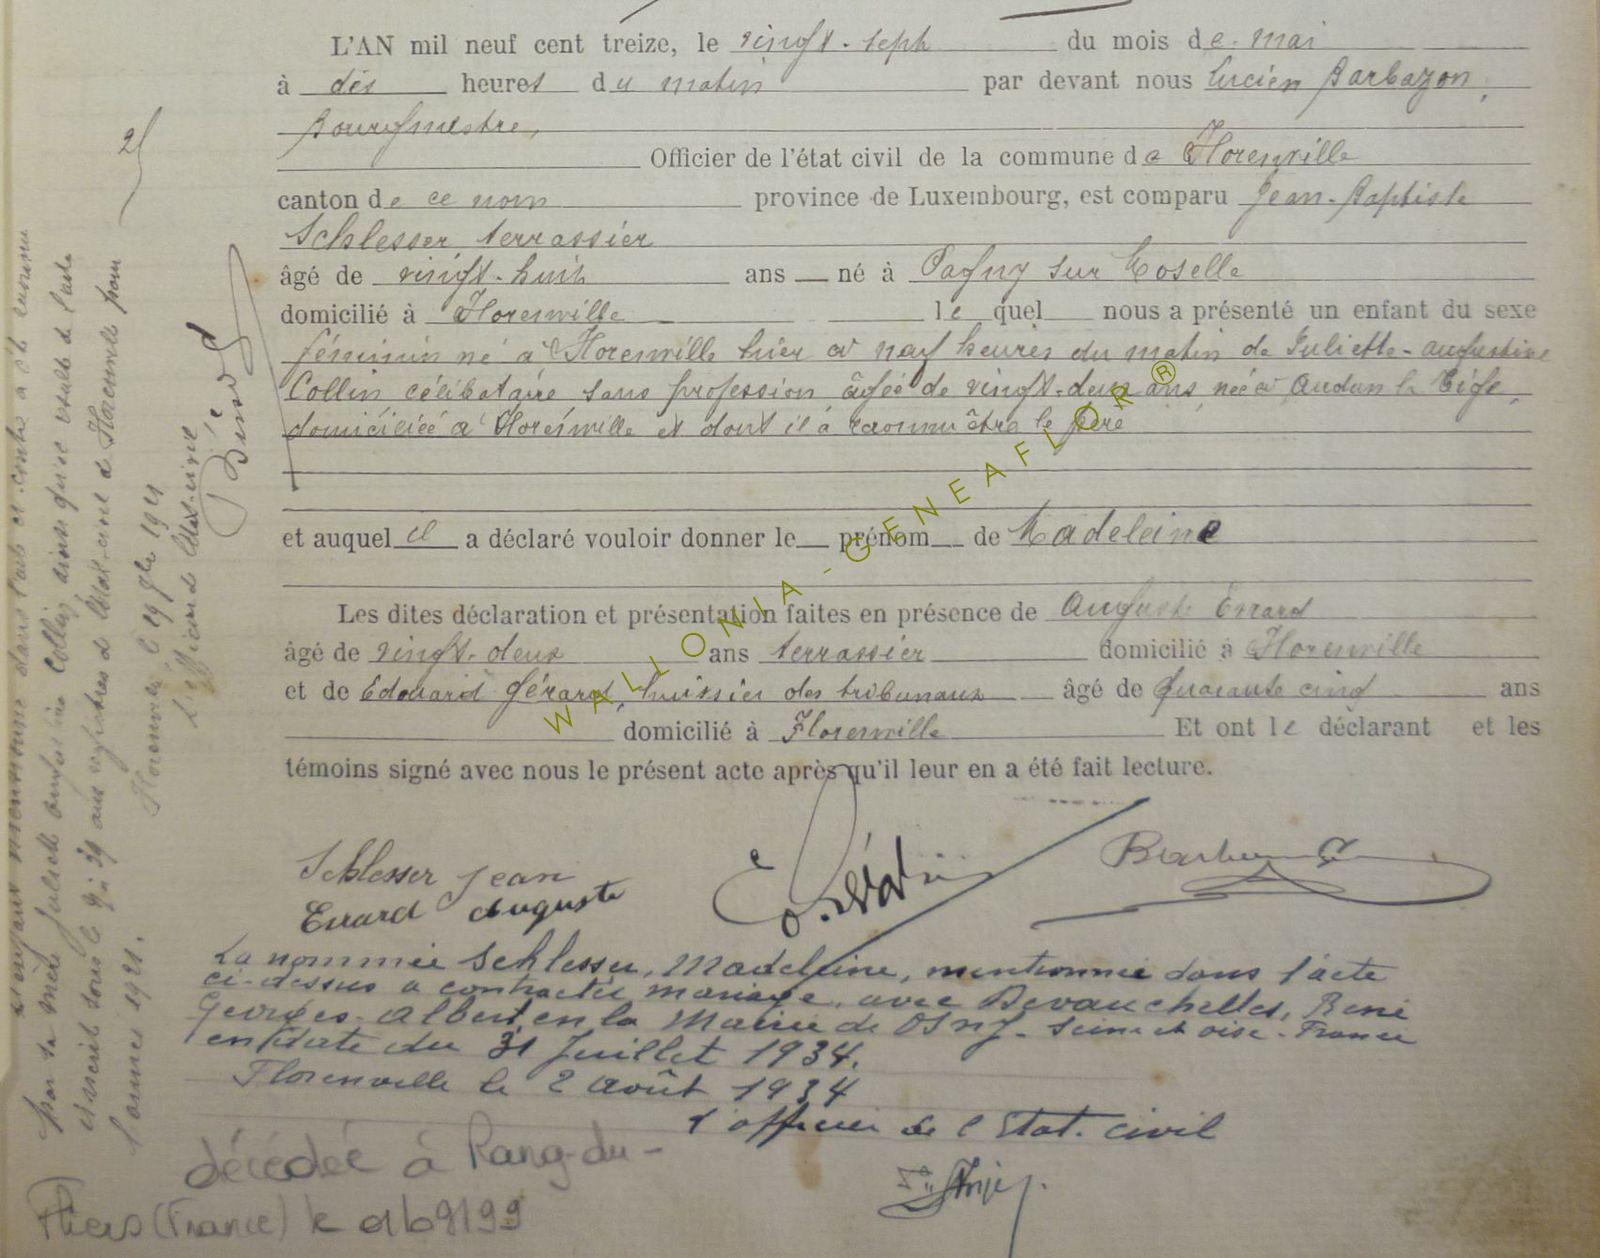 L'AN mil neuf cent treize, le vingt-sept du mois de mai
à dix heures du matin par devant nous Lucien Barbazon,
Bourgmestre,
Officier de l'état civil de la commune de Florenville
canton de ce nom province de Luxembourg, est comparu Jean-Baptiste
Schlesser terrassier
âgé de vingt-huit ans né à Pagny sur Moselle
domicilié à Florenville le quel nous a présenté un enfant du sexe
féminin né à Florenville hier à neuf heures du matin de Juliette-Augustine
Collin célibataire sans profession âgée de vingt-deux ans née à Audun le Tige,
domiciliée à Florenville et dont il a reconnu être le père
et auquel il a déclaré vouloir donner le prénom de Madeleine
Les dites déclaration et présentation faites en présence de Auguste Errard
âgé de vingt-deux ans terrassier domicilié à Florenville
et de Edouard Gérard, huissier des tribunaux âgé de quarante cinq ans
domicilié à Florenville Et ont le déclarant et les
témoins signé avec nous le présent acte après qu'il leur en a été fait lecture.
Schlesser Jean
Errard Auguste
La nommée Schlesser, Madeleine, mentionnée dans l'acte
ci-dessus a contracté mariage, avec Devauchelles, René
Georges-Albert, en la Mairie de Osny-Seine et Oise-France
en date du 31 Juillet 1934.
Florenville le 2 août 1934
l'officier de l'Etat-civil
décédée à Rang-du-
Fliers (France) le 01/09/99
L'enfant mentionné dans l'acte ci-contre a été reconnu
par sa mère Juliette Augustine Collin, ainsi qu'il résulte de l'acte
inscrit sous le n° 39 aux registres de l'état-civil de Florenville pour
l'année 1921.
Florenville le 19 1921
L'officier d'état-civil
WALLONIA-GENEAFLOR®